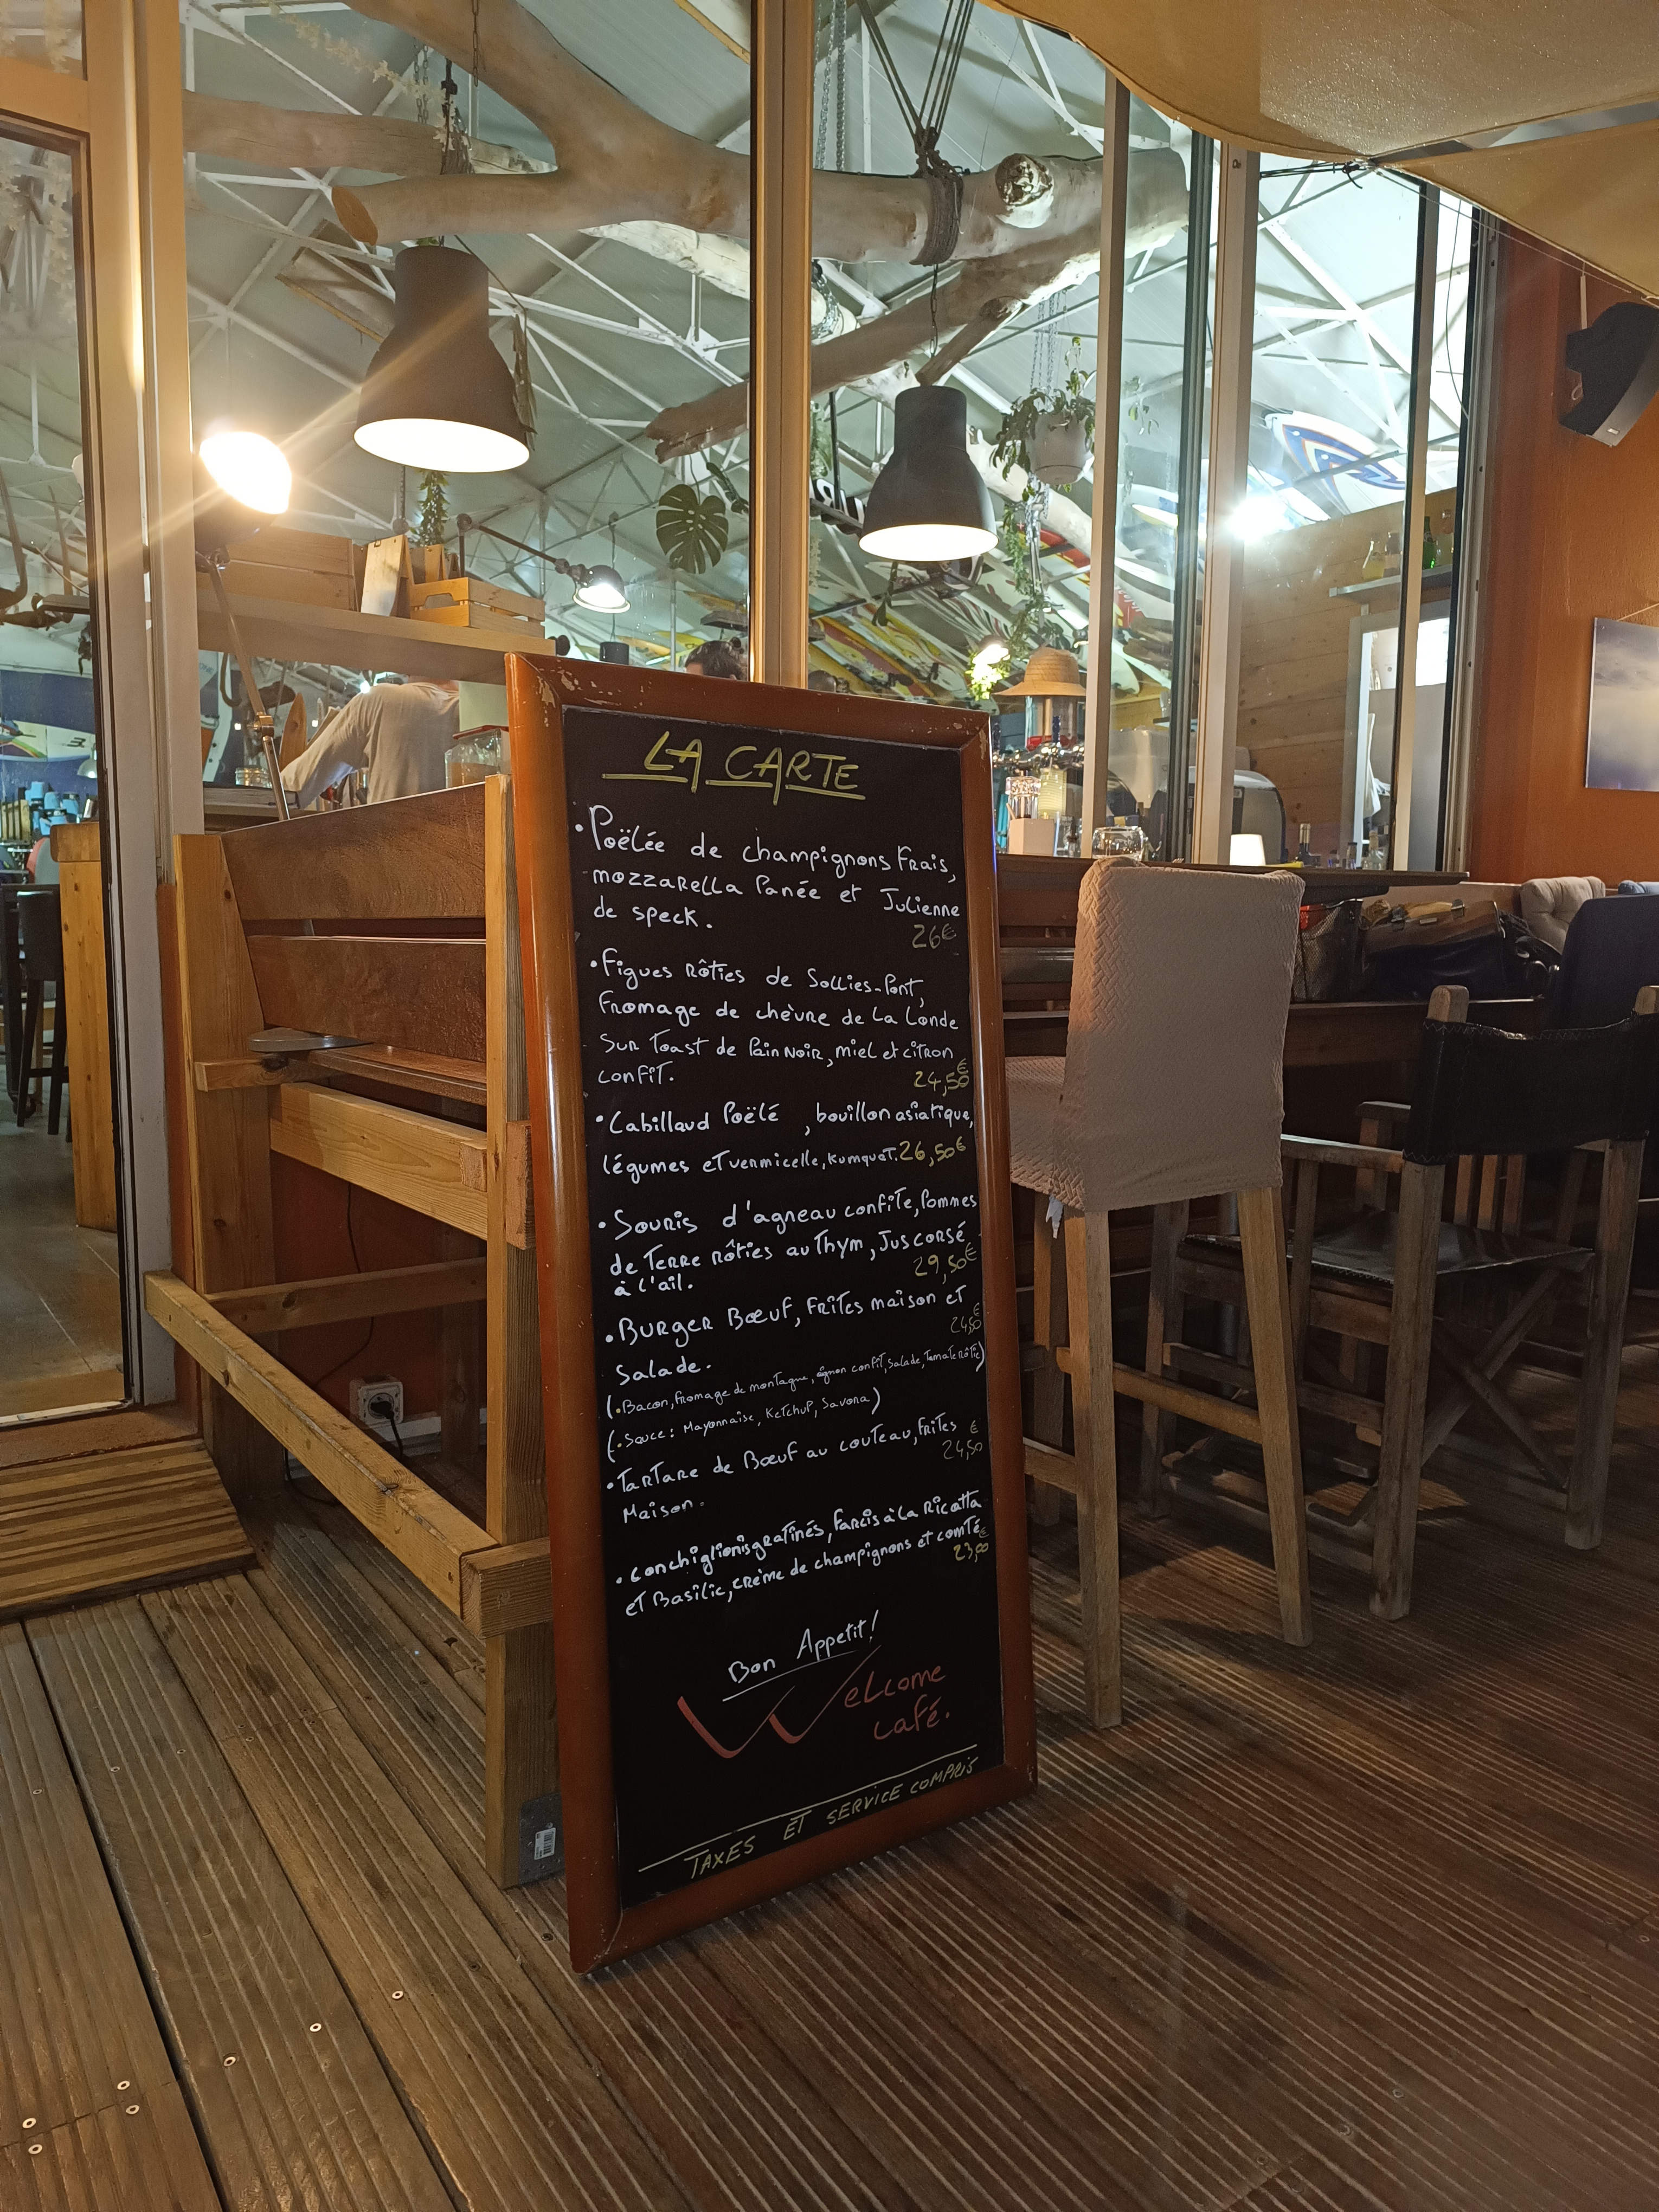 LA CARTE
• Poëlée de champignons Frais,
mozzarella Panée et Julienne
de speck.
26€
• Figues rôties de Sollies-Pont,
Fromage de chèvre de La Londe
Sur Toast de Pain Noir, miel et citron
confit.
24,50€
• Cabillaud Poëlé , bouillon asiatique,
légumes et vermicelle, kumquat. 26,50€
• Souris d'agneau confite, Pommes
de Terre rôties au Thym, Jus corsé
à l'ail.
29,50€
• Burger Bœuf, Frites maison et
Salade.
24,50€
(• Bacon, fromage de montagne, oignon confit, salade, Tomate rôtie)
(• Sauce: Mayonnaise, Ketchup, Savora)
• Tartare de Bœuf au couteau, Frites
Maison.
24,50€
• conchiglionis gratinés, farcis à La Ricotta
et Basilic, crème de champignons et comté
23,00€
Bon Appetit!
Welcome
café.
TAXES ET SERVICE COMPRIS